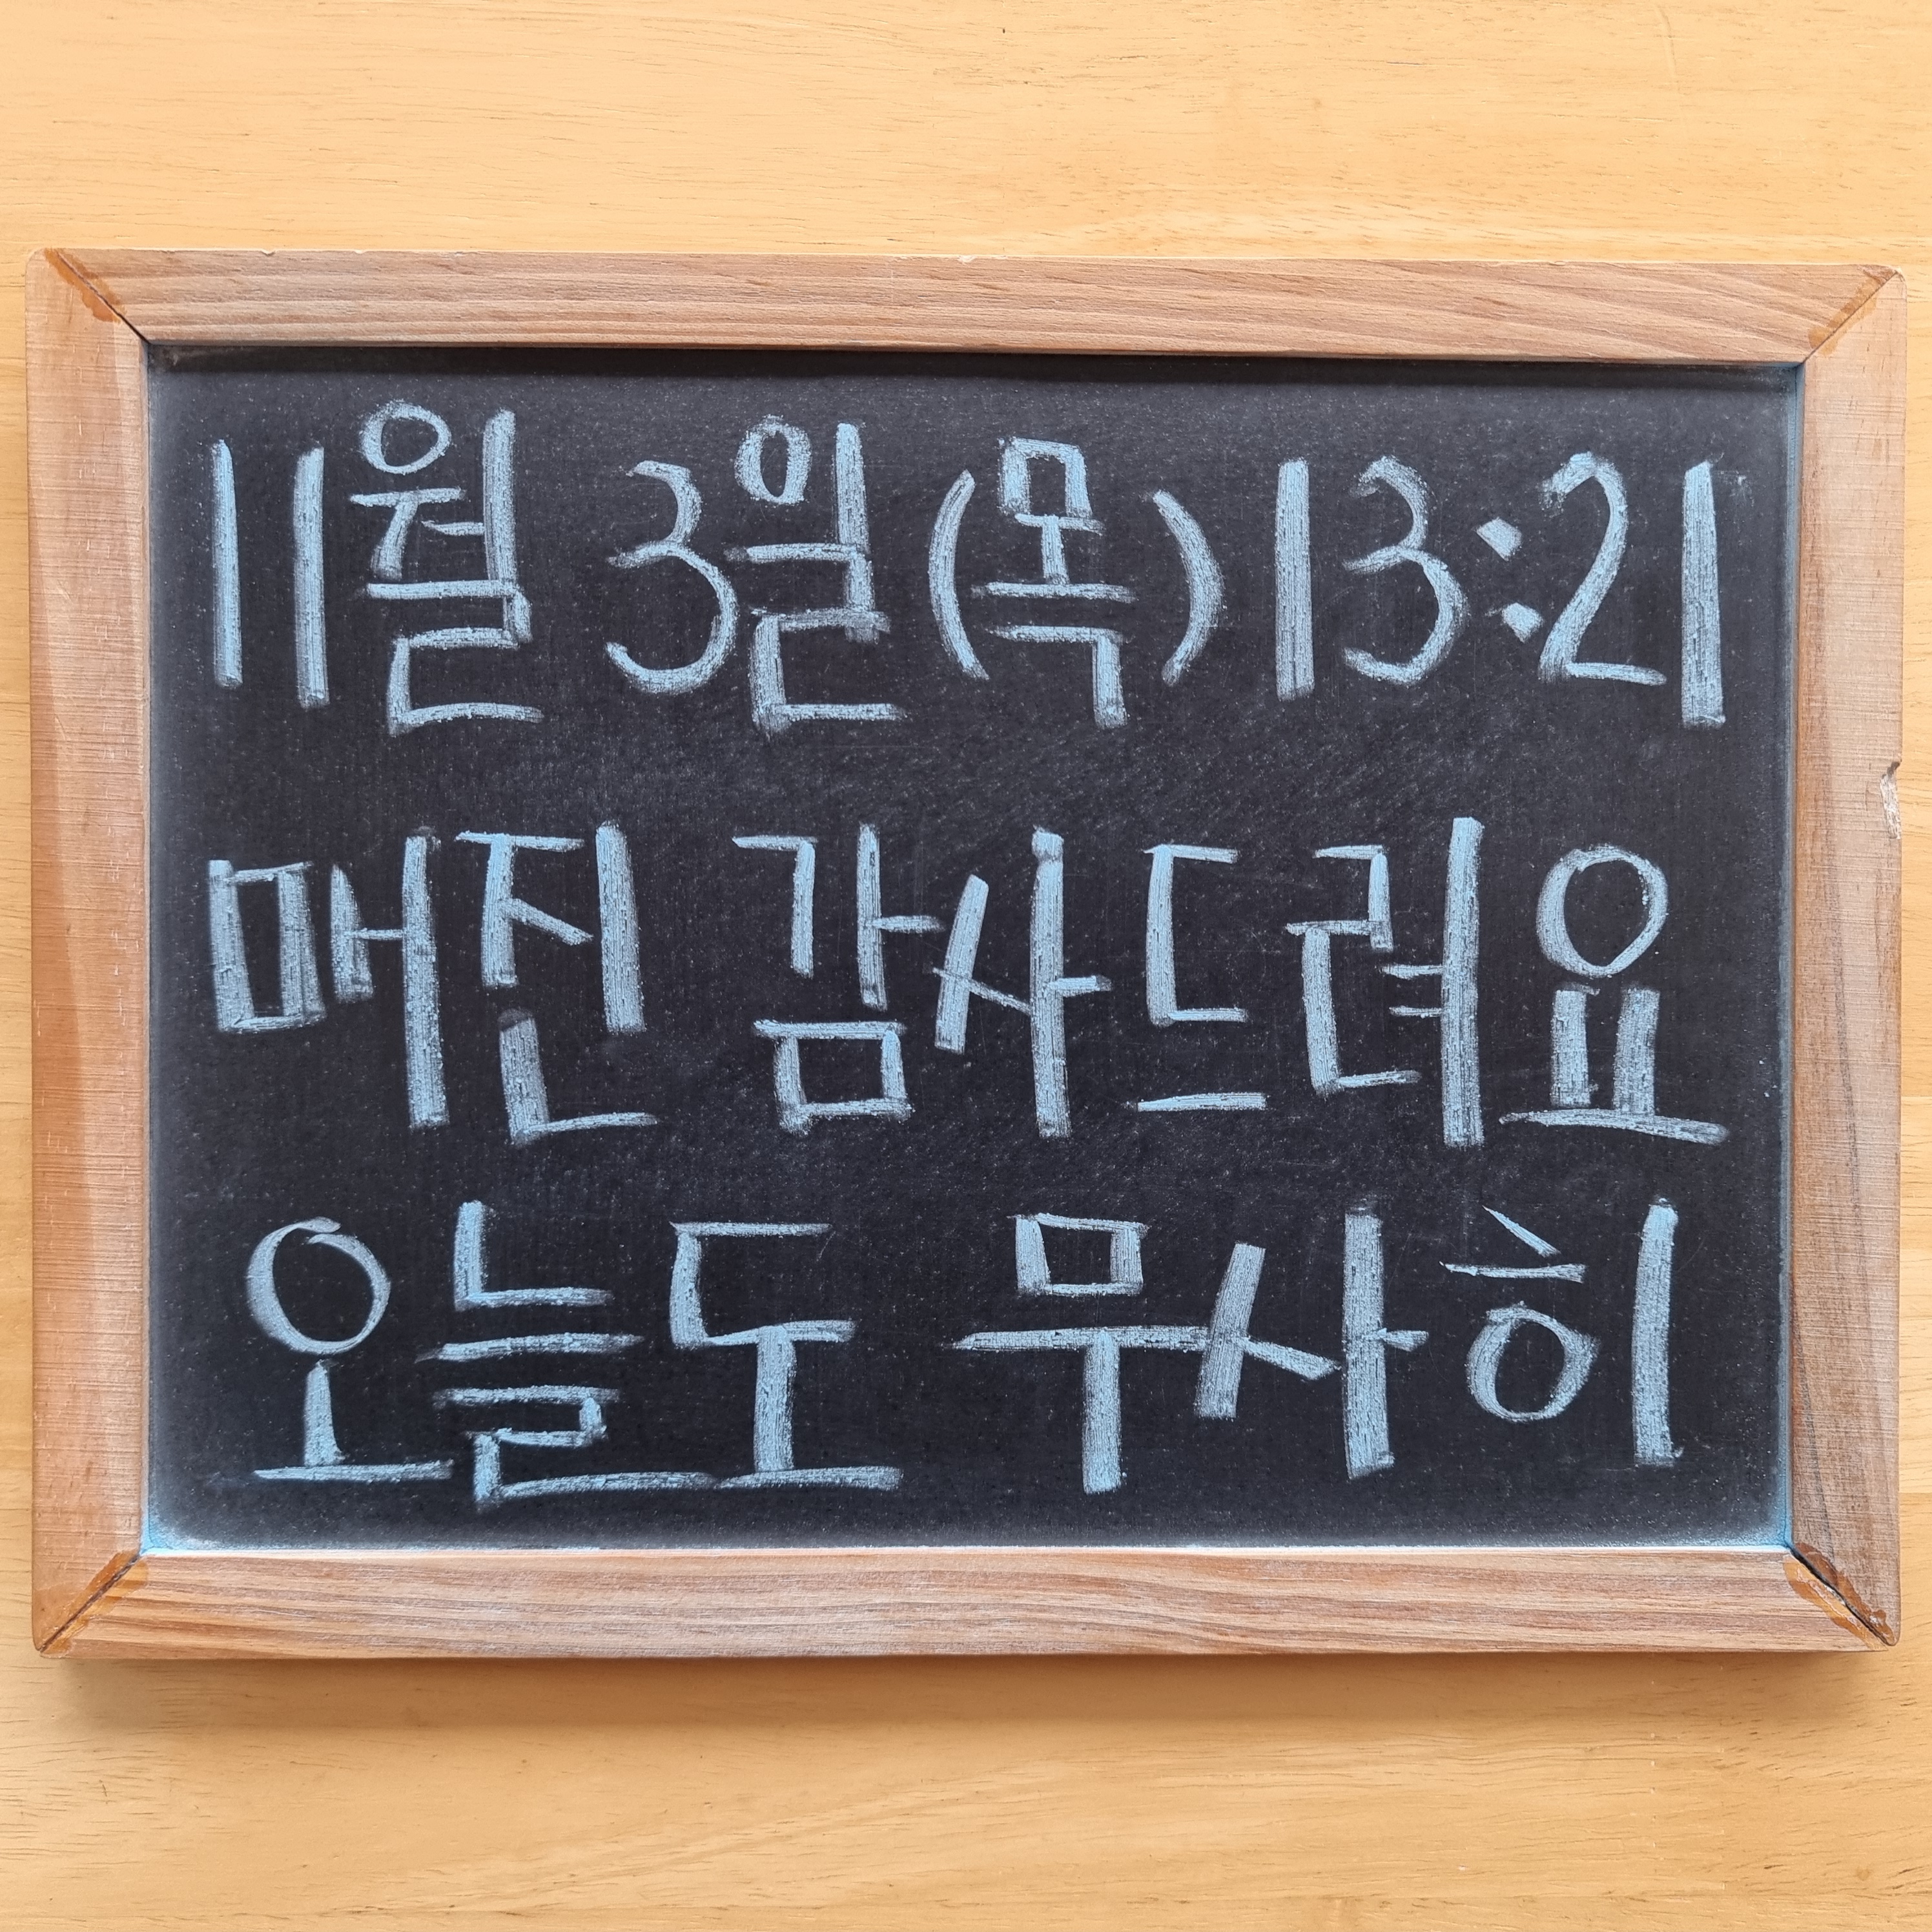 11월 3일(목)13:21
매진 감사드려요
오늘도 무사히